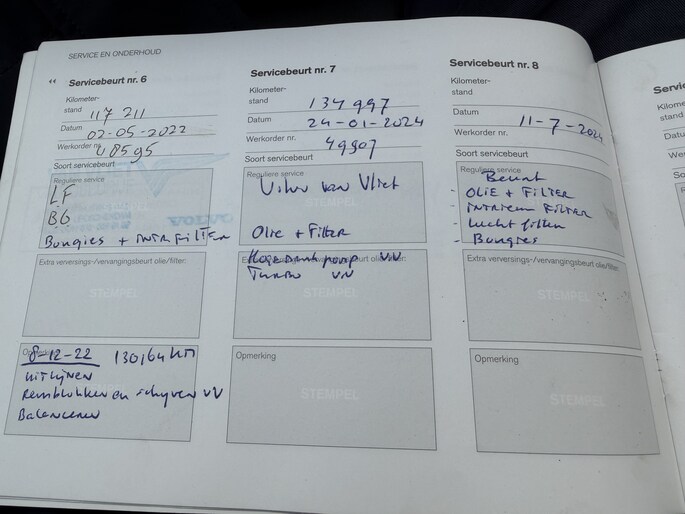 SERVICE EN ONDERHOUD
“ Servicebeurt nr. 6
Kilometer-
stand 117 211
Datum 02-05-2022
Werkorder nr. 48595
Soort servicebeurt
Reguliere service
LF
BG
Bougies + INTR FILTER
Extra verversings-/vervangingsbeurt olie/filter:
STEMPEL
Opmerking
8-12-22 130,64 km
uitlijnen
Remblokken en schyven VV
Balanceren
STEMPEL
Servicebeurt nr. 7
Kilometer-
stand 134 997
Datum 24-01-2024
Werkorder nr. 49907
Soort servicebeurt
Reguliere service
van Vliet
STEMPEL
Olie + Filter
Extra verversings-/vervangingsbeurt olie/filter:
Hogedrukpomp VV
Turbo VV
STEMPEL
Opmerking
STEMPEL
Servicebeurt nr. 8
Kilometer-
stand
Datum 11-7-2024
Werkorder nr.
Soort servicebeurt
Reguliere service
Beurt
- OLIE + FILTER
- intrieur FILTER
- lucht filter
- Bougies
STEMPEL
Extra verversings-/vervangingsbeurt olie/filter:
STEMPEL
Opmerking
STEMPEL
Servic
Kilome
stand
Datum
Werko
Soort